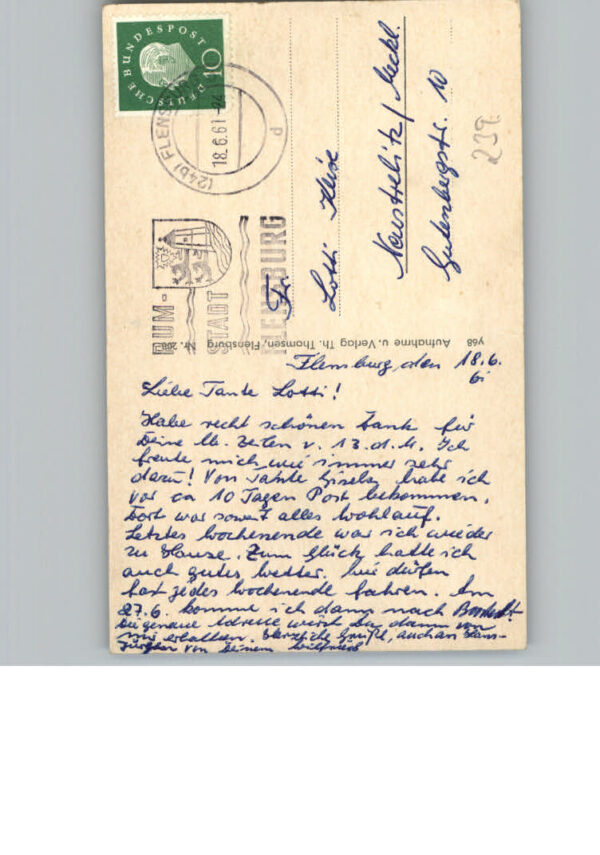 DEUTSCHE BUNDESPOST
10
(24b) FLENSBURG
18.6.61
d
RUM-
STADT
FLENSBURG
Fr.
Lotti Heise
Neustrelitz/Meckl.
Gutenbergstr. 10
239.
y68 Aufnahme u. Verlag Th. Thomsen, Flensburg Nr.
Flensburg, den 18.6.
61
Liebe Tante Lotti!
Habe recht schönen Dank für
Deine lb. Zeilen v. 13. d. M. Ich
freute mich wie immer sehr
dazu! Von Tante Gisela habe ich
vor ca 10 Tagen Post bekommen.
Dort war soweit alles wohlauf.
Letztes Wochenende war ich wieder
zu Hause. Zum Glück hatte ich
auch gutes Wetter. Wir dürfen
fast jedes Wochenende fahren. Am
27.6. komme ich dann nach
Die genaue Adresse wirst Du dann von
mir erhalten. Herzliche Grüße, auch an Hans-
von Deinem